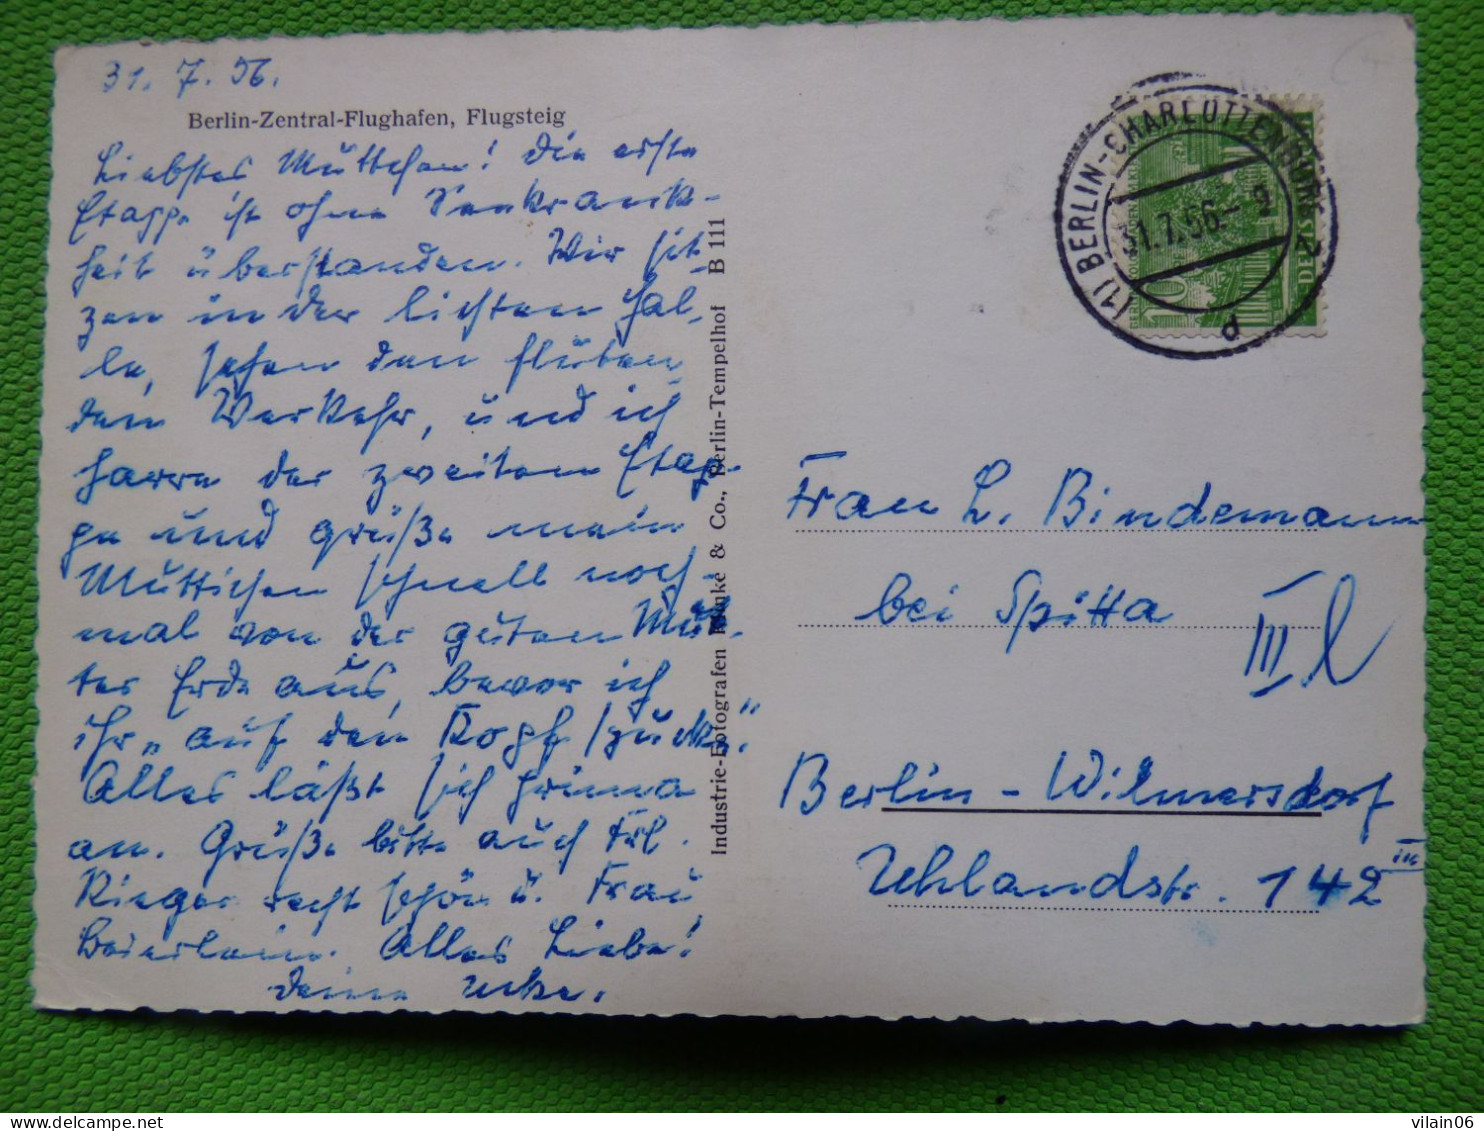 31. 7. 56.
Berlin-Zentral-Flughafen, Flugsteig
Liebstes Muttchen! Die erste
Etappe ist ohne Seekrank-
heit überstanden. Wir sit-
zen in der lichten Hal-
le, sehen den
dem Verkehr, und ich
harre der zweiten Etap-
pe und grüße mein
Muttichen schnell noch-
mal von der guten Mut-
ter Erde aus, bevor ich
ihr „auf den Kopf spucke."
Alles läßt sich prima
an. Grüße bitte auch Frl.
Rieger recht schön u. Frau
Alles Liebe!
Deine
Industrie-Fotografen & Co., Berlin-Tempelhof B 111
(1) BERLIN-CHARLOTTENBURG 2
31.7.56.- 9
d
10
Frau L. Bindemann
bei Spitta
III l
Berlin-Wilmersdorf
Uhlandstr. 142 III
vilain06